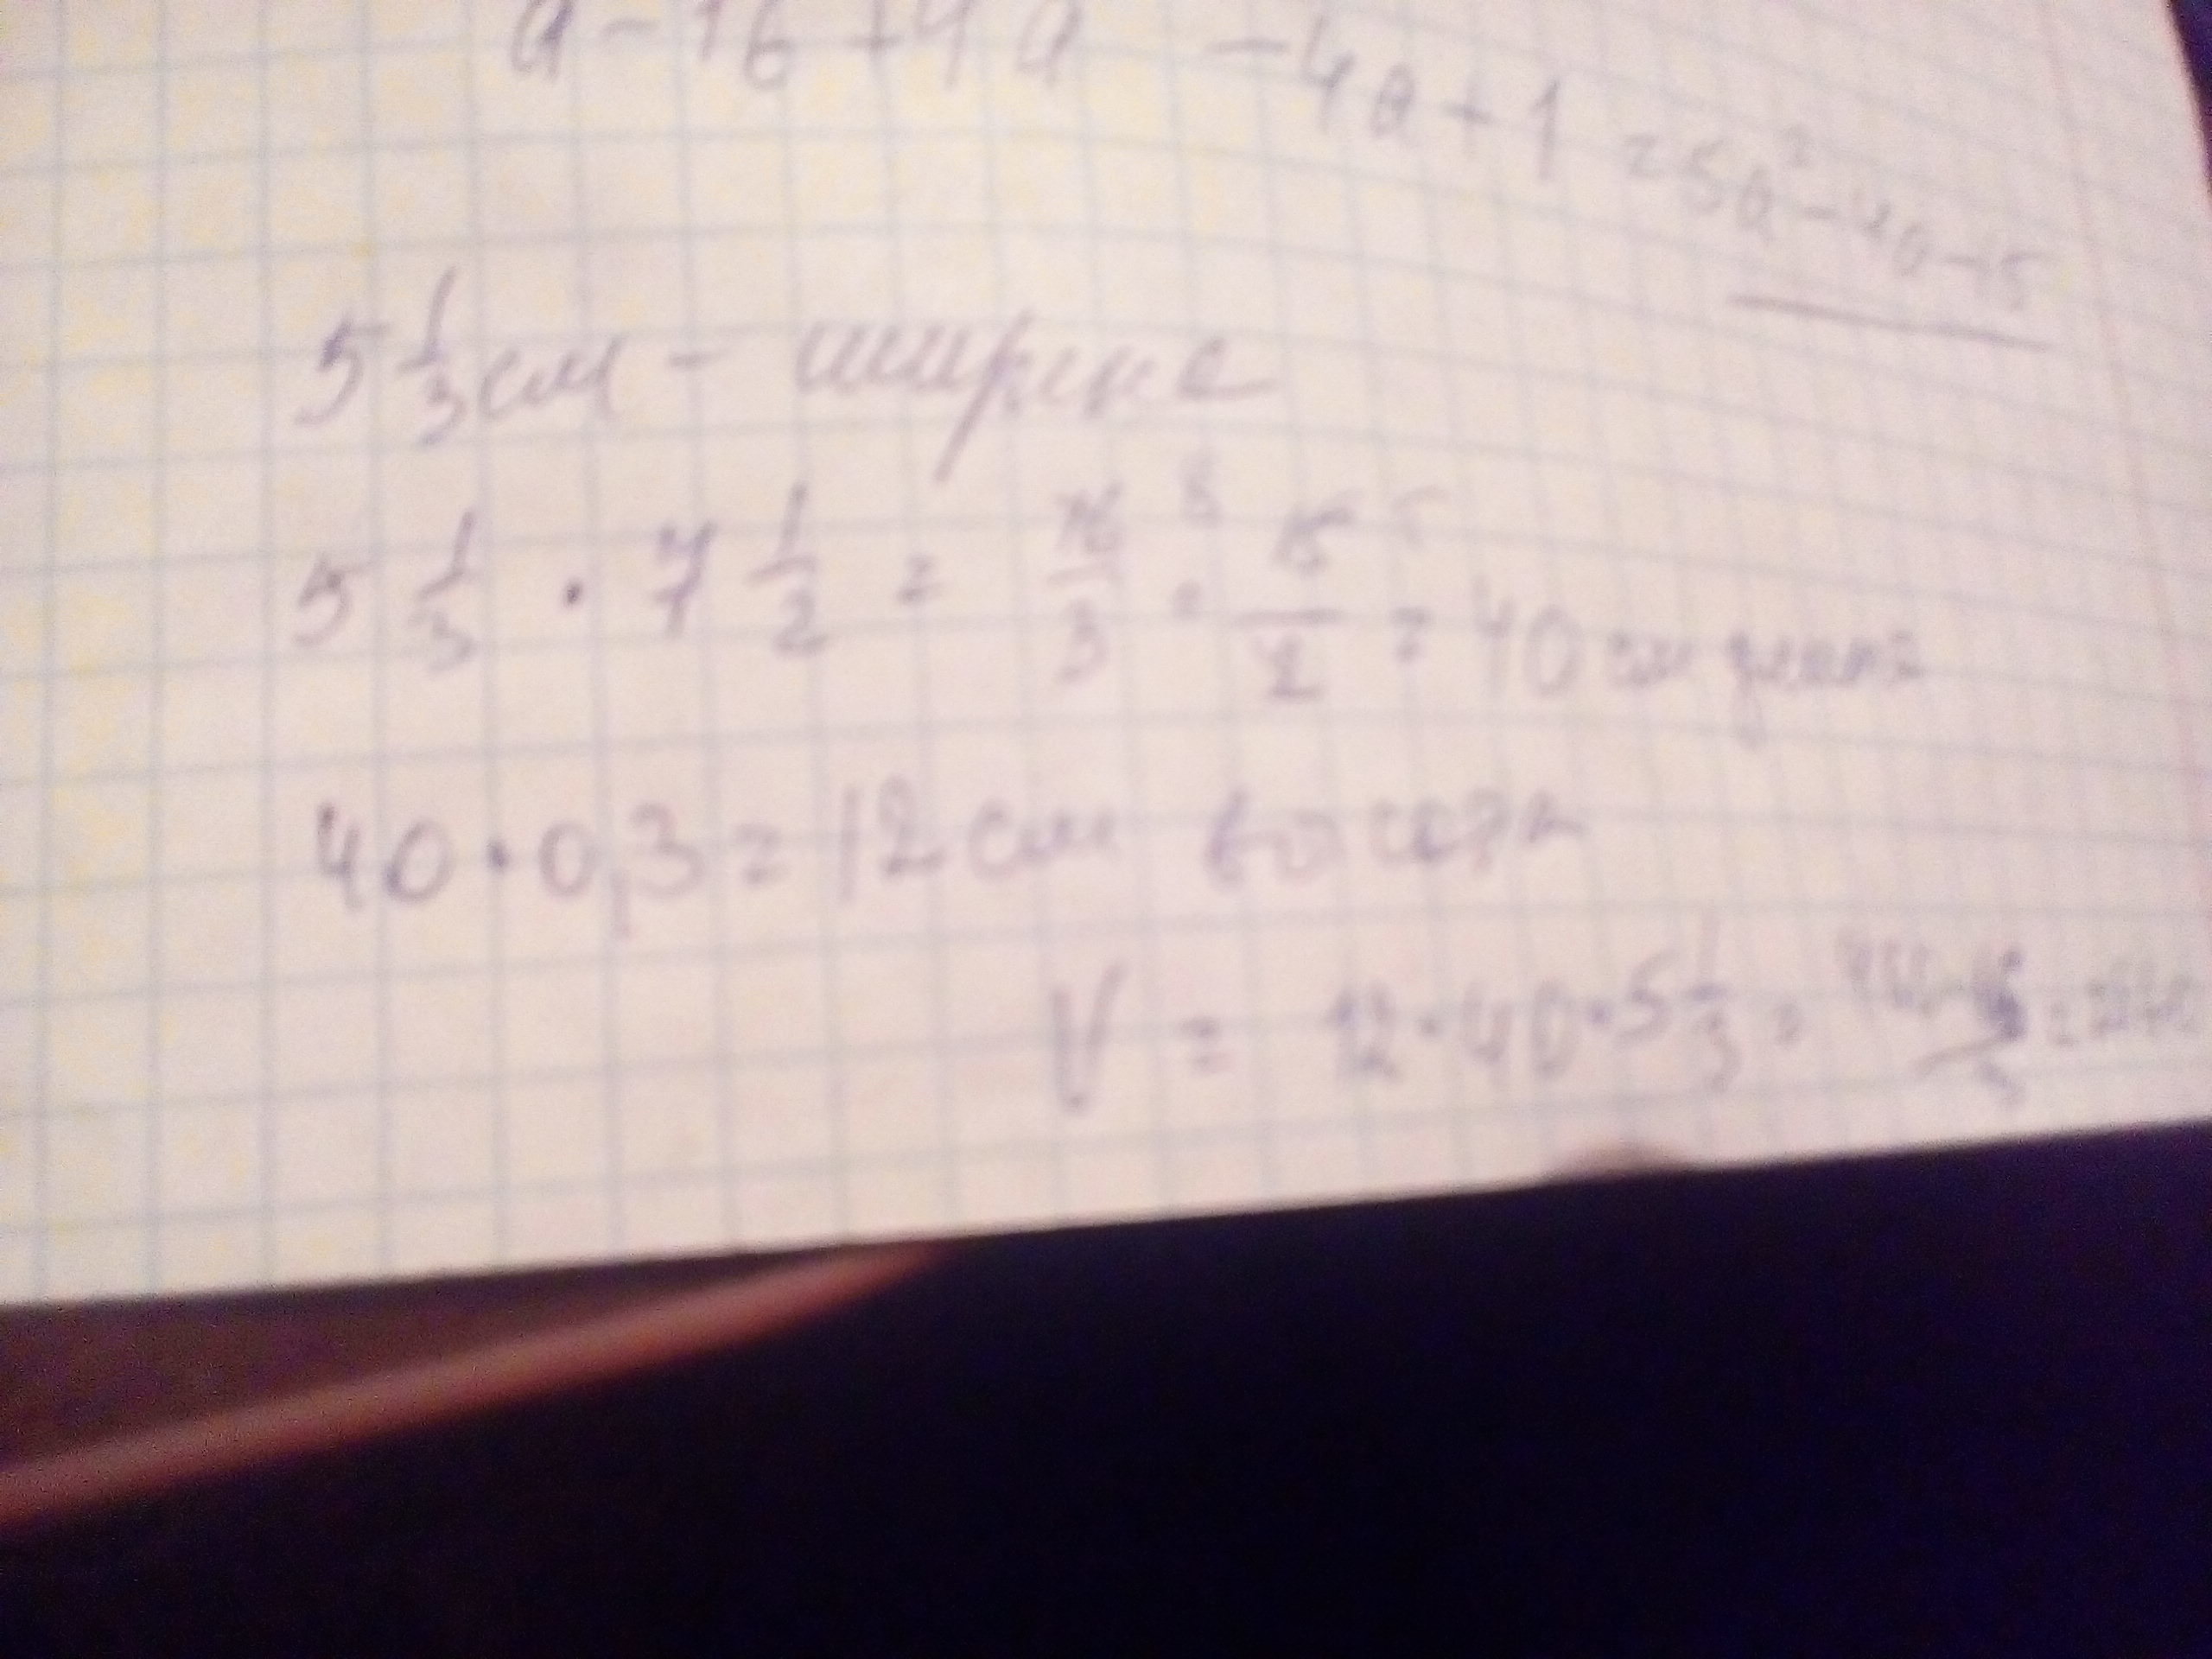 a - 16 + 4a - 4a + 1 = 5a² - 4a - 15
5 1/3 см - ширина
5 1/3 · 7 1/2 = 16/3 8 · 15/2 5 = 40 см длина
40 · 0,3 = 12 см высота
V = 12 · 40 · 5 1/3 =